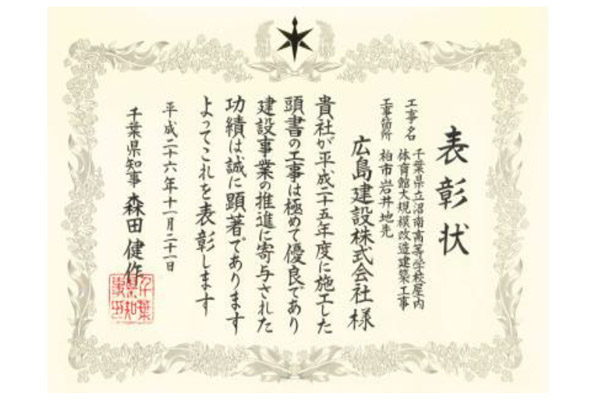 表彰状
工事名 千葉県立沼南高等学校屋内
体育館大規模改造建築工事
工事箇所 柏市岩井地先
広島建設株式会社 様
貴社が平成二十五年度に施工した
頭書の工事は極めて優良であり
建設事業の推進に寄与された
功績は誠に顕著であります
よってこれを表彰します
平成二十六年十一月二十一日
千葉県知事 森田健作
千葉
県知
事印